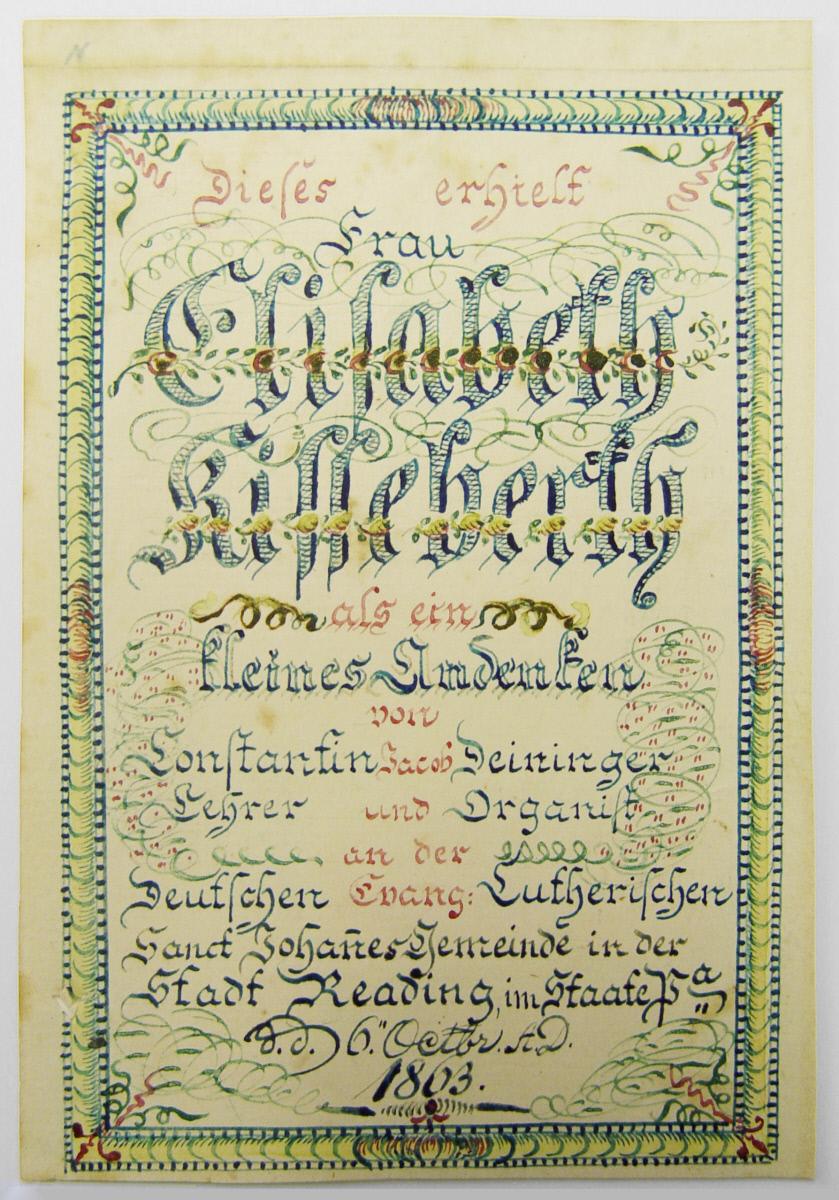 Dieses erhielt
Frau
Elisabeth
Kisseberth
als ein
kleines Andenken
von
Constantin Jacob Deininger
Lehrer und Organist
an der
Deutschen Evang: Lutherischen
Sanct Johan̄es Gemeinde in der
Stadt Reading, im Staate Pa
d.d. 6." Octbr. A.D.
1863.